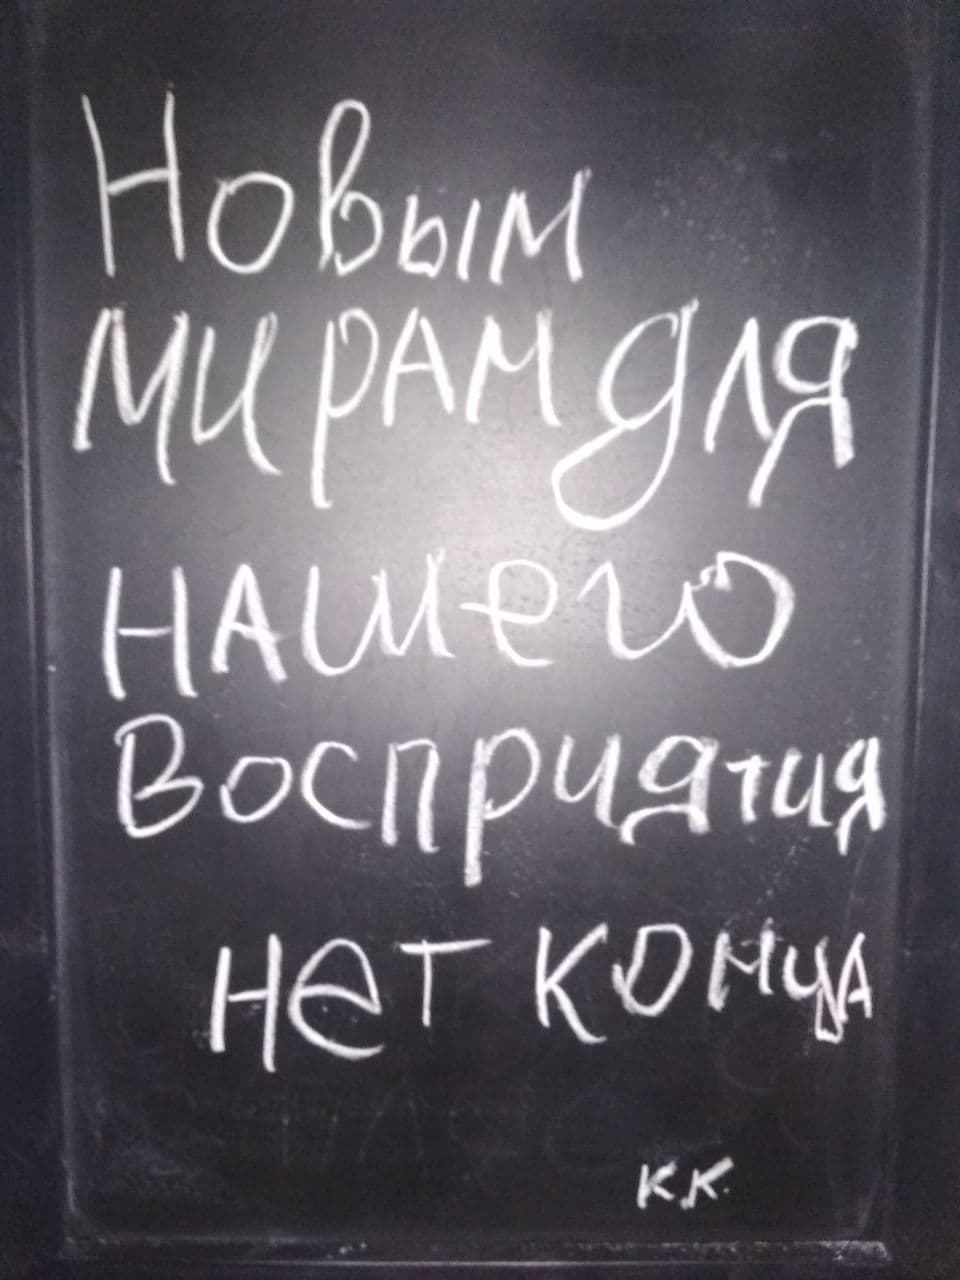 Новым
мирам для
нашего
Восприятия
нет конца
К.К.